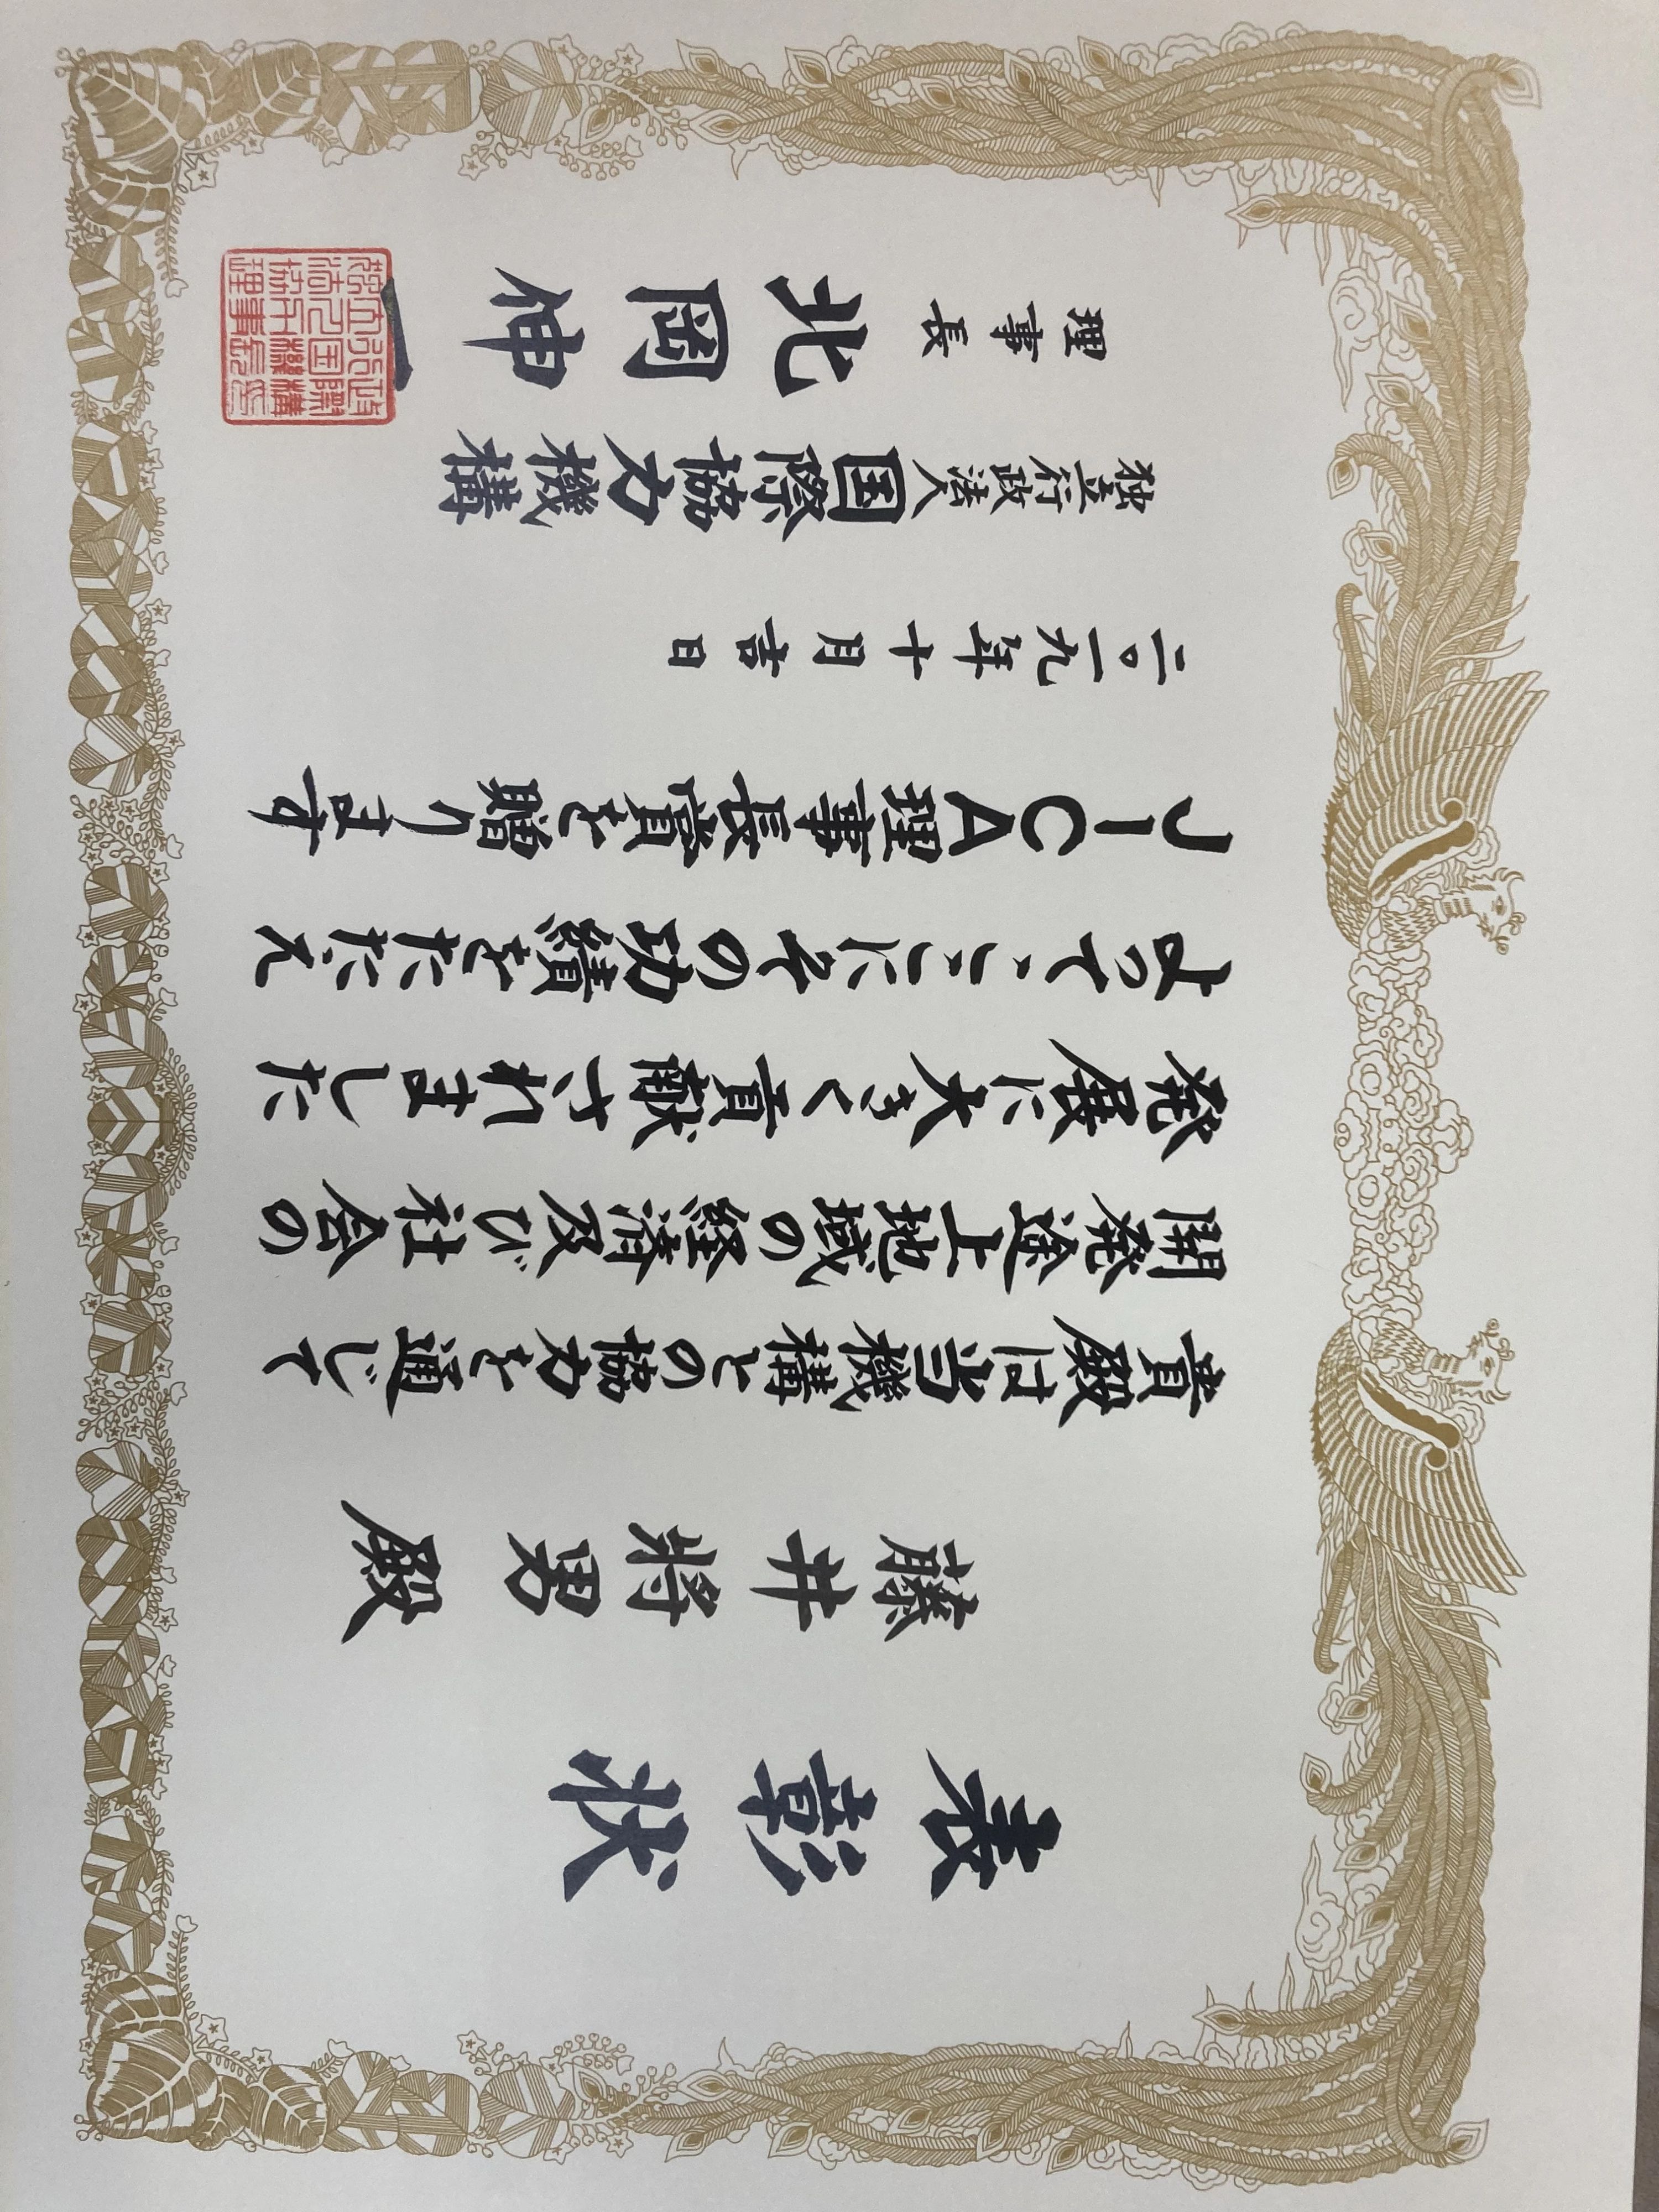 表彰状
藤井将男殿
貴殿は当機構との協力を通じて
開発途上地域の経済及び社会の
発展に大きく貢献されました
よって、ここにその功績をたたえ
JICA理事長賞を贈ります
二〇一九年十月吉日
独立行政法人国際協力機構
理事長 北岡伸一
独立行政法人国際協力機構理事長之印